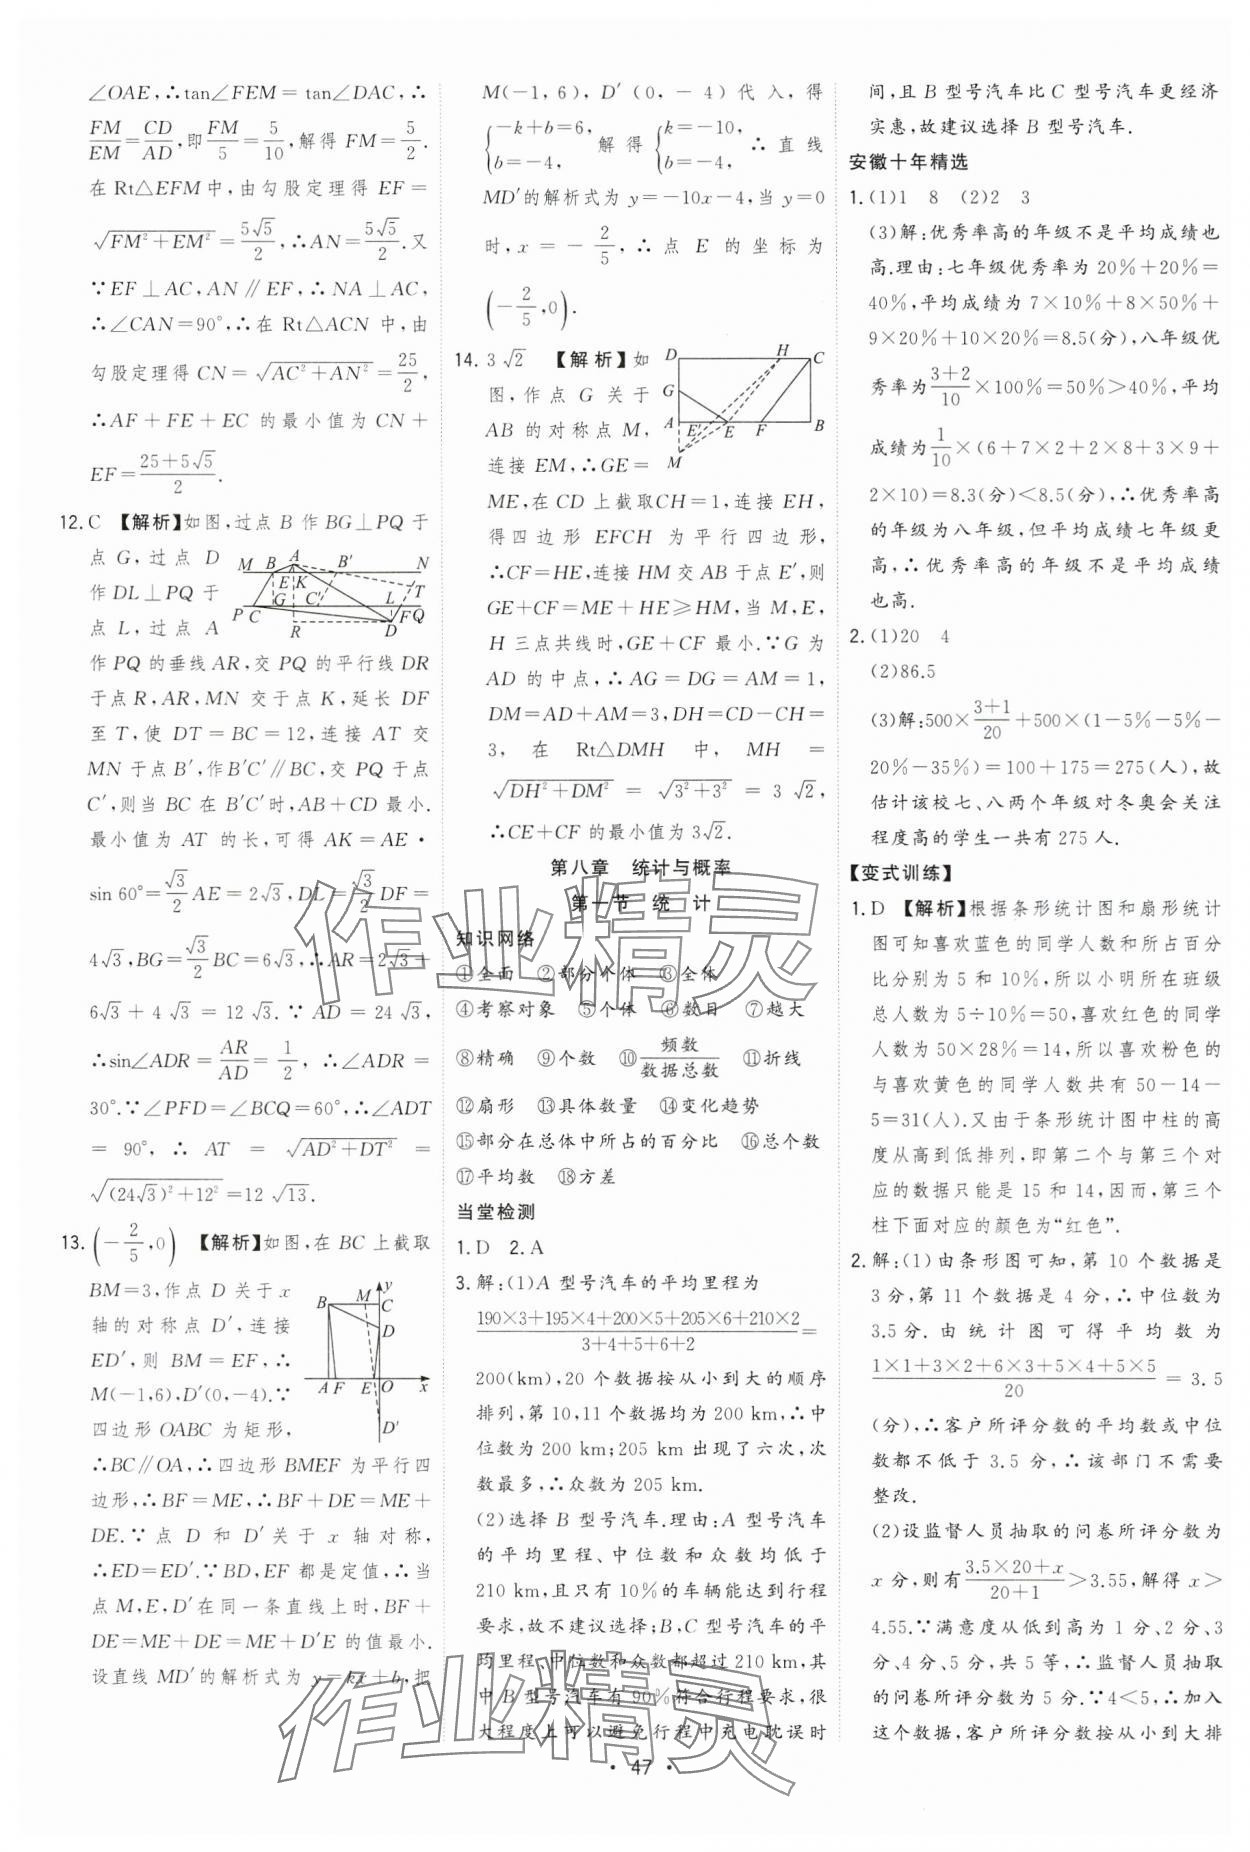 ∠OAE,∴tan∠FEM＝tan∠DAC,∴
FM/EM＝CD/AD,即FM/5＝5/10,解得 FM＝5/2.
在 Rt△EFM中,由勾股定理得 EF＝
√(FM²＋EM²)＝5√5/2,∴AN＝5√5/2.又
∵EF⊥AC,AN∥EF,∴NA⊥AC,
∴∠CAN＝90°,∴在 Rt△ACN 中,由
勾股定理得 CN＝√(AC²＋AN²)＝25/2,
∴AF＋FE＋EC 的最小值为 CN＋
EF＝(25＋5√5)/2.
12.C 【解析】如图,过点 B 作 BG⊥PQ 于
点 G,过点 D
作 DL⊥PQ 于
点 L,过点 A
M B A B′ N
E K
G C′ L T
P C F Q
R D
作 PQ 的垂线 AR,交 PQ 的平行线 DR
于点 R,AR,MN 交于点 K,延长 DF
至 T,使 DT＝BC＝12,连接 AT 交
MN 于点 B′,作B′C′∥BC,交 PQ 于点
C′,则当 BC 在 B′C′时,AB＋CD 最小.
最小值为 AT 的长,可得 AK＝AE·
sin 60°＝√3/2 AE＝2√3,DL＝√3/2 DF＝
4√3,BG＝√3/2 BC＝6√3,∴AR＝2√3＋
6√3＋4√3＝12√3.∵AD＝24√3,
∴sin∠ADR＝AR/AD＝1/2,∴∠ADR＝
30°.∵∠PFD＝∠BCQ＝60°,∴∠ADT
＝90°,∴AT＝√(AD²＋DT²)＝
√((24√3)²＋12²)＝12√13.
13.(－2/5,0) 【解析】如图,在 BC 上截取
BM＝3,作点 D 关于 x
轴的对称点 D′,连接
ED′,则 BM＝EF,∴
M(－1,6),D′(0,－4).∵
四边形 OABC 为矩形,
y
B M C
D
A F E O x
D′
∴BC∥OA,∴四边形 BMEF 为平行四
边形,∴BF＝ME,∴BF＋DE＝ME＋
DE.∵点 D 和 D′关于 x 轴对称,
∴ED＝ED′.∵BD,EF 都是定值,∴当
点 M,E,D′在同一条直线上时,BF＋
DE＝ME＋DE＝ME＋D′E 的值最小.
设直线 MD′的解析式为 y＝kx＋b,把
M(－1,6),D′(0,－4)代入,得
{－k＋b＝6, b＝－4, 解得{k＝－10, b＝－4, ∴直线
MD′的解析式为 y＝－10x－4,当 y＝0
时,x＝－2/5,∴点 E 的坐标为
(－2/5,0).
14.3√2 【解析】如
图,作点 G 关于
AB 的对称点 M,
连接 EM,∴GE＝
D H C
G
A E′ E F B
M
ME,在 CD 上截取CH＝1,连接 EH,
得四边形 EFCH 为平行四边形,
∴CF＝HE,连接 HM 交 AB 于点 E′,则
GE＋CF＝ME＋HE≥HM,当 M,E,
H 三点共线时,GE＋CF 最小.∵G 为
AD 的中点,∴AG＝DG＝AM＝1,
DM＝AD＋AM＝3,DH＝CD－CH＝
3,在 Rt△DMH 中,MH＝
√(DH²＋DM²)＝√(3²＋3²)＝3√2,
∴CE＋CF 的最小值为 3√2.
第八章 统计与概率
第一节 统 计
知识网络
①全面 ②部分个体 ③全体
④考察对象 ⑤个体 ⑥数目 ⑦越大
⑧精确 ⑨个数 ⑩频数/数据总数 ⑪折线
⑫扇形 ⑬具体数量 ⑭变化趋势
⑮部分在总体中所占的百分比 ⑯总个数
⑰平均数 ⑱方差
当堂检测
1.D 2.A
3.解:(1)A 型号汽车的平均里程为
(190×3＋195×4＋200×5＋205×6＋210×2)/(3＋4＋5＋6＋2)＝
200(km),20 个数据按从小到大的顺序
排列,第 10,11 个数据均为 200 km,∴中
位数为 200 km;205 km 出现了六次,次
数最多,∴众数为 205 km.
(2)选择 B 型号汽车.理由:A 型号汽车
的平均里程、中位数和众数均低于
210 km,且只有 10%的车辆能达到行程
要求,故不建议选择;B,C 型号汽车的平
均里程、中位数和众数都超过 210 km,其
中 B 型号汽车有 90%符合行程要求,很
大程度上可以避免行程中充电耽误时
间,且 B 型号汽车比 C 型号汽车更经济
实惠,故建议选择 B 型号汽车.
安徽十年精选
1.(1)1 8 (2)2 3
(3)解:优秀率高的年级不是平均成绩也
高.理由:七年级优秀率为 20%＋20%＝
40%,平均成绩为 7×10%＋8×50%＋
9×20%＋10×20%＝8.5(分),八年级优
秀率为(3＋2)/10×100%＝50%＞40%,平均
成绩为1/10×(6＋7×2＋2×8＋3×9＋
2×10)＝8.3(分)＜8.5(分),∴优秀率高
的年级为八年级,但平均成绩七年级更
高,∴优秀率高的年级不是平均成绩
也高.
2.(1)20 4
(2)86.5
(3)解:500×(3＋1)/20＋500×(1－5%－5%－
20%－35%)＝100＋175＝275(人),故
估计该校七、八两个年级对冬奥会关注
程度高的学生一共有 275 人.
【变式训练】
1.D 【解析】根据条形统计图和扇形统计
图可知喜欢蓝色的同学人数和所占百分
比分别为 5 和 10%,所以小明所在班级
总人数为 5÷10%＝50,喜欢红色的同学
人数为 50×28%＝14,所以喜欢粉色的
与喜欢黄色的同学人数共有 50－14－
5＝31(人).又由于条形统计图中柱的高
度从高到低排列,即第二个与第三个对
应的数据只能是 15 和 14,因而,第三个
柱下面对应的颜色为“红色”.
2.解:(1)由条形图可知,第 10 个数据是
3 分,第 11 个数据是 4 分,∴中位数为
3.5分.由统计图可得平均数为
(1×1＋3×2＋6×3＋5×4＋5×5)/20＝3.5
(分),∴客户所评分数的平均数或中位
数都不低于 3.5 分,∴该部门不需要
整改.
(2)设监督人员抽取的问卷所评分数为
x 分,则有(3.5×20＋x)/(20＋1)＞3.55,解得 x＞
4.55.∵满意度从低到高为 1 分、2 分、3
分、4 分、5 分,共 5 等,∴监督人员抽取
的问卷所评分数为 5 分.∵4＜5,∴加入
这个数据,客户所评分数按从小到大排
·47·
作业精灵
作业精灵